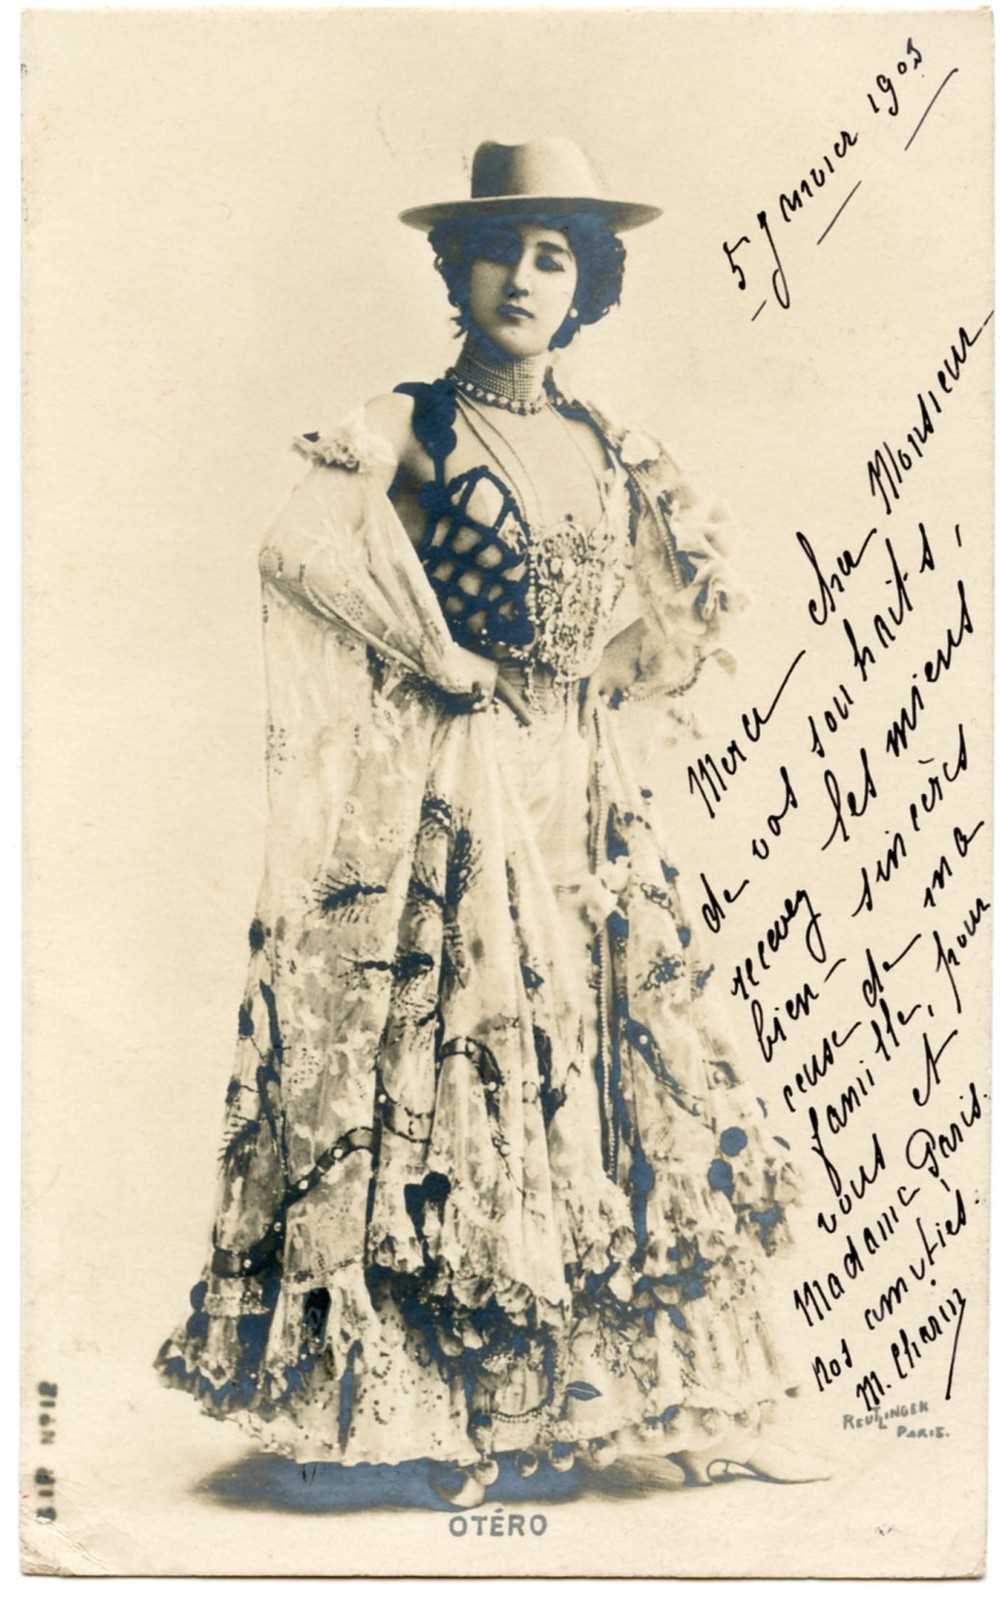 5 janvier 1903
Merci cher Monsieur
de vos souhaits,
recevez les miens
bien sincères
ceux de ma
famille, pour
vous et
Madame Paris.
nos amitiés.
M. Charin
REUTLINGER
PARIS.
OTÉRO
SIP Nº12